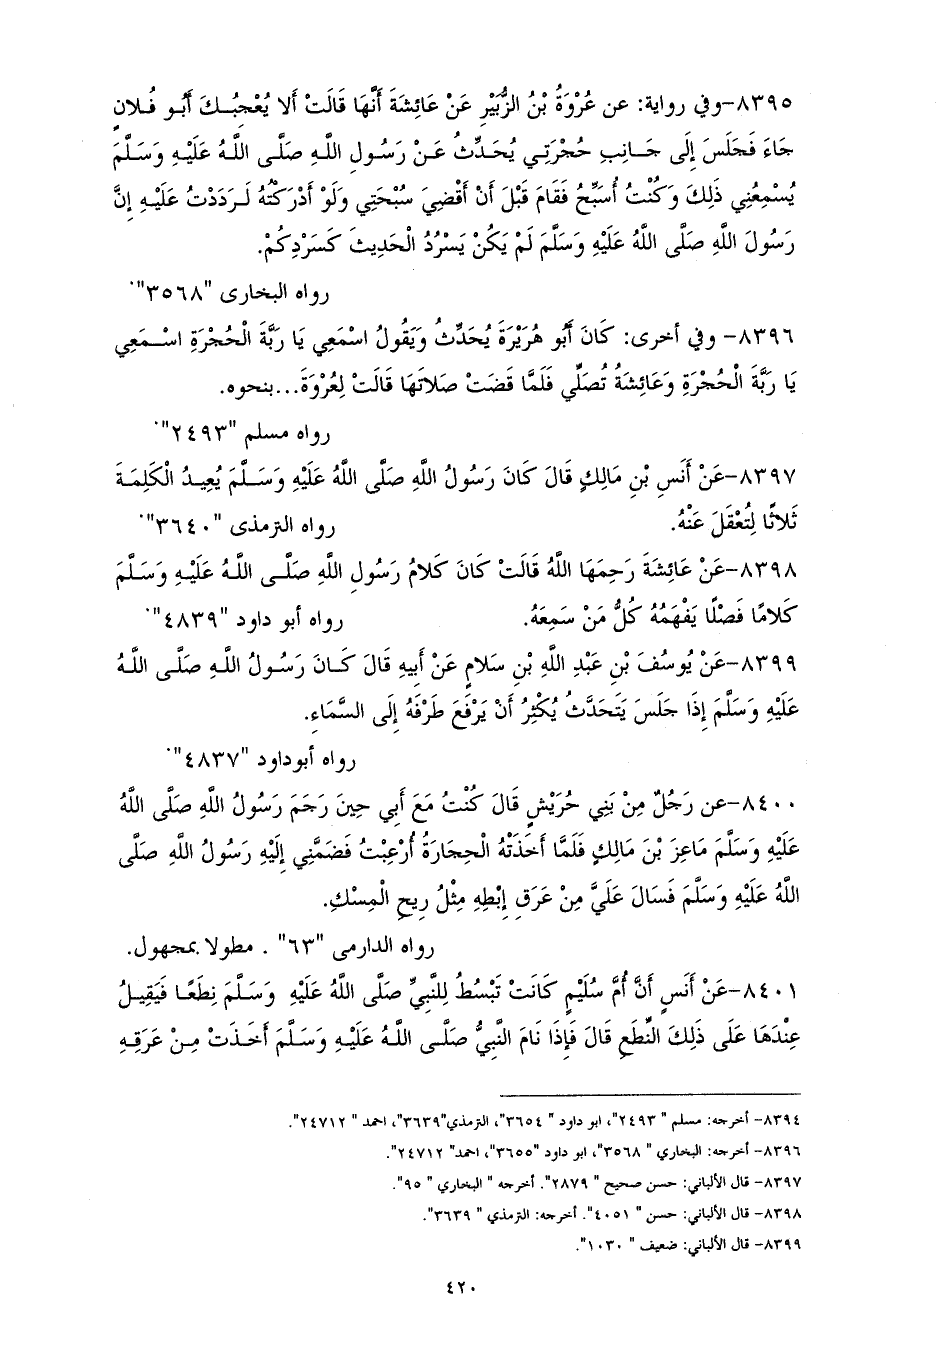 ٨٣٩٥-وفي رواية: عن عُرْوَةُ بْنُ الزُّبَيْرِ عَنْ عَائِشَةَ أَنَّهَا قَالَتْ أَلا يُعْجِبُـكَ أَبُـو فُـلانٍ
جَاءَ فَجَلَسَ إِلَى جَـانِبِ حُجْرَتِي يُحَدِّثُ عَـنْ رَسُـولِ اللَّـهِ صَلَّـى اللَّـهُ عَلَيْـهِ وَسَـلَّمَ
يُسْمِعُنِي ذَلِكَ وَكُنْتُ أُسَبِّحُ فَقَامَ قَبْلَ أَنْ أَقْضِيَ سُبْحَتِي وَلَوْ أَدْرَكْتُهُ لَـرَدَدْتُ عَلَيْـهِ إِنَّ
رَسُولَ اللَّهِ صَلَّى اللَّهُ عَلَيْهِ وَسَلَّمَ لَمْ يَكُنْ يَسْرُدُ الْحَدِيثَ كَسَرْدِكُمْ.
رواه البخارى "٣٥٦٨".
٨٣٩٦- وفي أخرى: كَانَ أَبُو هُرَيْرَةَ يُحَدِّثُ وَيَقُولُ اسْمَعِي يَا رَبَّةَ الْحُجْرَةِ اسْـمَعِي
يَا رَبَّةَ الْحُجْرَةِ وَعَائِشَةُ تُصَلِّي فَلَمَّا قَضَتْ صَلاتَهَا قَالَتْ لِعُرْوَةَ...بنحوه.
رواه مسلم "٢٤٩٣".
٨٣٩٧-عَنْ أَنَسِ بْنِ مَالِكٍ قَالَ كَانَ رَسُولُ اللَّهِ صَلَّى اللَّهُ عَلَيْهِ وَسَـلَّمَ يُعِيدُ الْكَلِمَـةَ
ثَلاثًا لِتُعْقَلَ عَنْهُ. رواه الترمذى "٣٦٤٠".
٨٣٩٨-عَنْ عَائِشَةَ رَحِمَهَا اللَّهُ قَالَتْ كَانَ كَلامُ رَسُولِ اللَّهِ صَلَّـى اللَّـهُ عَلَيْـهِ وَسَـلَّمَ
كَلامًا فَصْلًا يَفْهَمُهُ كُلُّ مَنْ سَمِعَهُ. رواه أبو داود "٤٨٣٩".
٨٣٩٩-عَنْ يُوسُفَ بْنِ عَبْدِ اللَّهِ بْنِ سَلامٍ عَنْ أَبِيهِ قَالَ كَـانَ رَسُـولُ اللَّـهِ صَلَّـى اللَّـهُ
عَلَيْهِ وَسَلَّمَ إِذَا جَلَسَ يَتَحَدَّثُ يُكْثِرُ أَنْ يَرْفَعَ طَرْفَهُ إِلَى السَّمَاءِ.
رواه أبوداود "٤٨٣٧".
٨٤٠٠-عن رَجُلٌ مِنْ بَنِي حُرَيْشٍ قَالَ كُنْتُ مَعَ أَبِي حِينَ رَجَمَ رَسُولُ اللَّهِ صَلَّى اللَّهُ
عَلَيْهِ وَسَلَّمَ مَاعِزَ بْنَ مَالِكٍ فَلَمَّا أَخَذَتْهُ الْحِجَارَةُ أُرْعِبْتُ فَضَمَّنِي إِلَيْهِ رَسُولُ اللَّهِ صَلَّى
اللَّهُ عَلَيْهِ وَسَلَّمَ فَسَالَ عَلَيَّ مِنْ عَرَقِ إِبْطِهِ مِثْلُ رِيحِ الْمِسْكِ.
رواه الدارمى "٦٣" . مطولا بمجهول.
٨٤٠١-عَنْ أَنَسٍ أَنَّ أُمَّ سُلَيْمٍ كَانَتْ تَبْسُطُ لِلنَّبِيِّ صَلَّى اللَّهُ عَلَيْهِ وَسَلَّمَ نِطَعًـا فَيَقِيلُ
عِنْدَهَا عَلَى ذَلِكَ النِّطَعِ قَالَ فَإِذَا نَامَ النَّبِيُّ صَلَّـى اللَّـهُ عَلَيْـهِ وَسَـلَّمَ أَخَـذَتْ مِـنْ عَرَقِـهِ
٨٣٩٤- أخرجه: مسلم " ٢٤٩٣"، ابو داود " ٣٦٥٤"، الترمذي"٣٦٣٩"، احمد " ٢٤٧١٢".
٨٣٩٦- أخرجه: البخاري " ٣٥٦٨"، ابو داود "٣٦٥٥"، احمد" ٢٤٧١٢".
٨٣٩٧- قال الألباني: حسن صحيح " ٢٨٧٩". أخرجه " البخاري " ٩٥".
٨٣٩٨- قال الألباني: حسن " ٤٠٥١". أخرجه: الترمذي " ٣٦٣٩".
٨٣٩٩- قال الألباني: ضعيف " ١٠٣٠".
٤٢٠